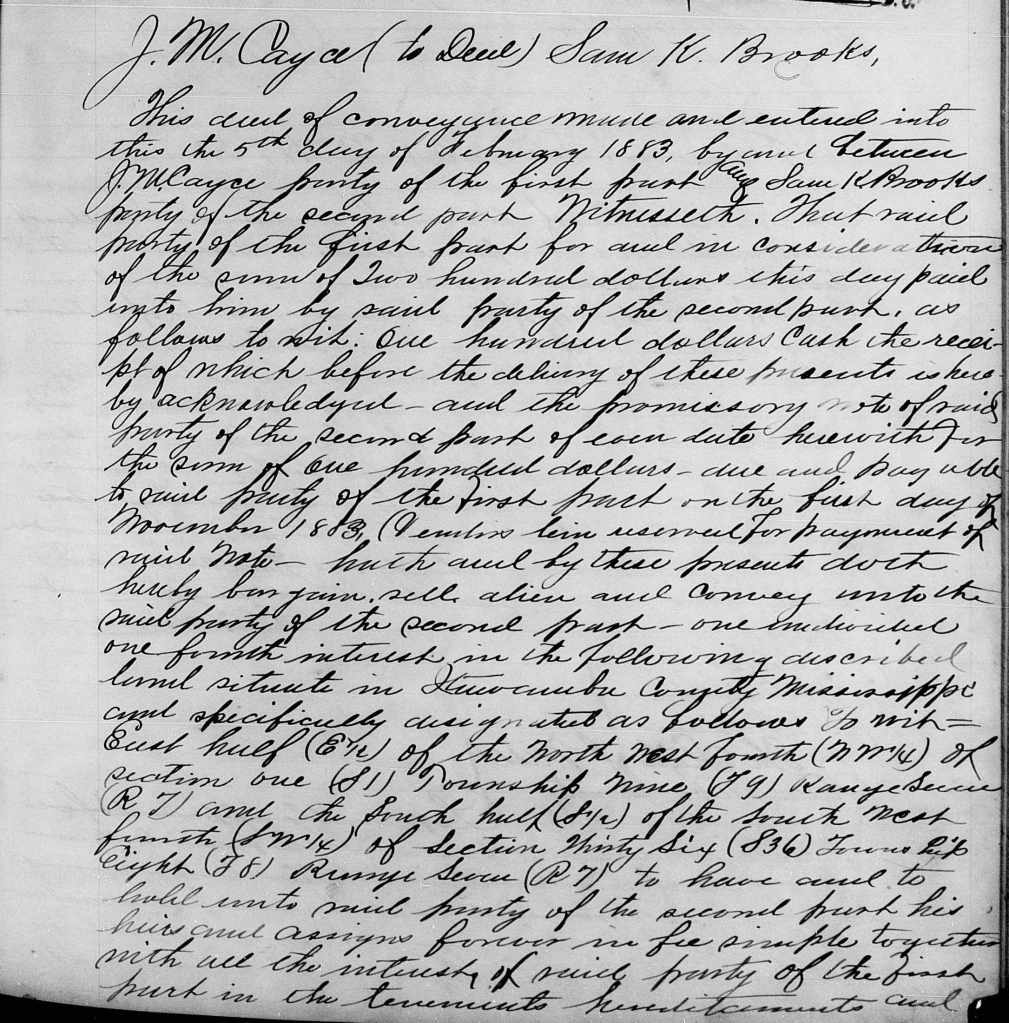 J. M. Cayce (to Deed) Sam K. Brooks,
This deed of conveyance made and entered into
this the 5th day of February 1883, by and between
J. M. Cayce party of the first part and Sam K Brooks
party of the second part Witnesseth. That said
party of the first part for and in consideration
of the sum of Two hundred dollars this day paid
unto him by said party of the second part, as
follows to wit: One hundred dollars Cash the recei-
pt of which before the delivery of these presents is here-
by acknowledged - and the promissory note of said
party of the second part of even date herewith for
the sum of One hundred dollars - due and payable
to said party of the first part on the first day of
November 1883, (Vendors lien reserved for payment of
said Note - hath and by these presents doth
hereby bargain. sell. alien and convey unto the
said party of the second part - one undivided
one fourth interest in the following described
land situate in Itawamba County Mississippi
and specifically designated as follows to wit =
East half (E 1/2) of the North West fourth (N W 1/4) of
section one (S 1) Township Nine (T 9) Range Seven
(R 7) and the South half (S 1/2) of the South West
fourth (S W 1/4) of section Thirty Six (S 36) Township
Eight (T 8) Range Seven (R 7) to have and to
hold unto said party of the second part his
heirs and assigns forever in fee simple together
with all the interest of said party of the first
part in the tenements hereditaments and